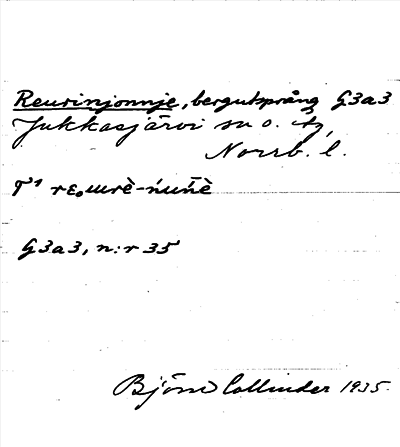 Reurinjonnje, bergutsprång G3a3
Jukkasjärvi sn o. tg,
Norrb. l.
G3a3, n:r 35
Björn Collinder 1935.